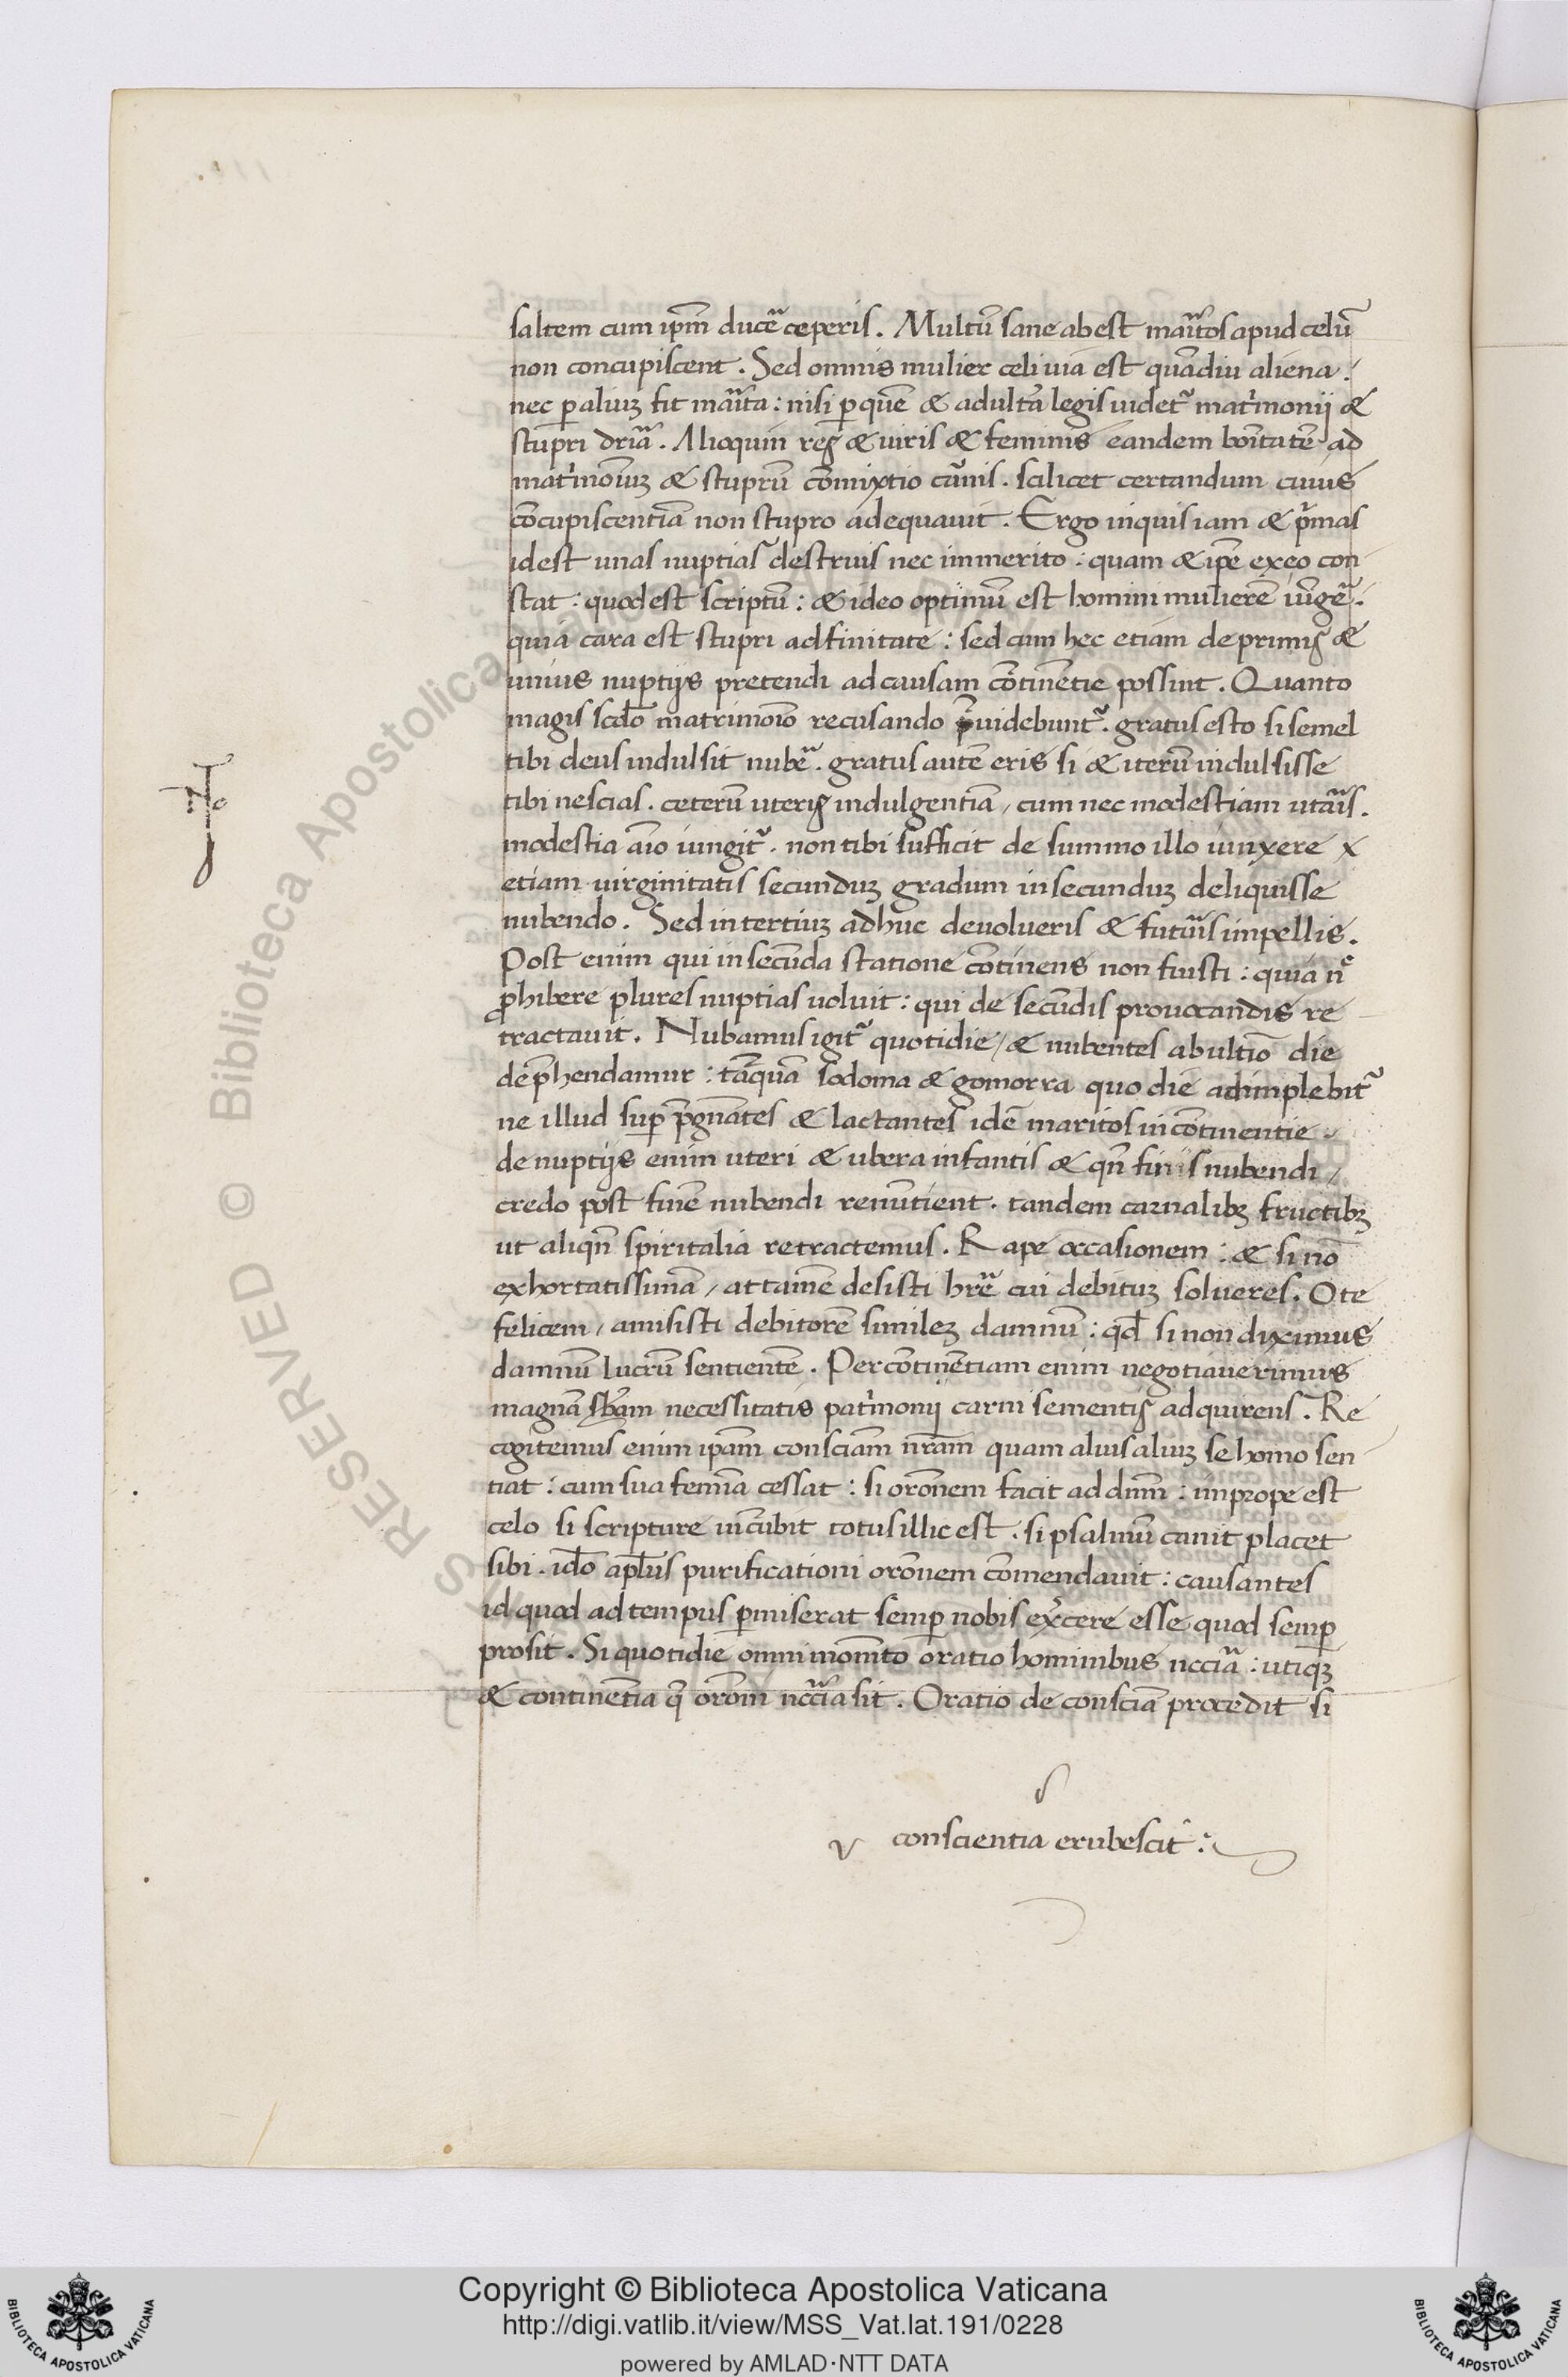 saltem cum ip̄m ducẽ ceperis. Multū sane abest maritos apud celū
non concupiscent. Sed omnis mulier celi uia est quādiu aliena.
nec p̱ aliuꝫ fit marita: nisi p̱ quē & adultā legis uidet᷑ matrimonij &
stupri dr̄ia. Alioquin reꝝ & uiris & feminis eandem bonitatē ad
matrimōiuꝫ & stuprū cōmixtio carnis. scilicet certandum cuius
cōcupiscentiā non stupro adequauit. Ergo inquis iam & p̄mas
idest unas nuptias destruis nec immerito: quam & ip̄e exeo con
stat: quod est scriptū: & ideo optimū est homini mulierē iūgẽ.
quia cara est stupri adfinitate: sed cum hec etiam de primis &
unius nuptijs pretendi ad causam cōtinētie possint. Quanto
magis scdo matrimoīo recusando p̄uidebunt᷑. gratus esto si semel
tibi deus indulsit nubẽ. gratus autē eris si & iterū indulsisse
tibi nescias. ceterū uteris indulgentiā, cum nec modestiam utaris.
modestia aīo iungit᷑. non tibi sufficit de summo illo uinxere x
etiam uirginitatis secunduꝫ gradum in secunduꝫ deliquisse
nubendo. Sed in tertiuꝫ adhuc deuolueris & futuris impellis.
Post enim qui in secūda statione cōtinens non fuisti: quia nͤ
ꝓhibere plures nuptias uoluit: qui de secūdis prouocandis re
tractauit. Nubamus igit᷑ quotidie, & nubentes ab ultīo die
dep̄hendamur: tāquā sodoma & gomorra quo die adimplebit᷑
ue illud sup̱ p̄gnātes & lactantes idē maritos incōtinentie.
de nuptijs enim uteri & ubera infantis & qn̄ finis nubendi,
credo post finē nubendi renūtient. tandem carnalibꝫ fructibꝫ
ut aliqn̄ spiritalia retractemus. Rape occasionem: & si nō
exhortatissimā, attamē desisti hr̃e cui debituꝫ solueres. O te
felicem, amisisti debitorē simileꝫ damnū: qd̄ si non diximus
damnū lucrū sentientē. Per cōtinētiam enim negotiauerimus
magnā sb̄am necessitatis patrimonij carni sementis adquirens. Re
cogitemus enim ipām consciām nr̄am quam alius aliuꝫ se homo sen
tiat: cum sua femīa cessat: si orōnem facit ad dnm̄: im prope est
celo si scripture incūbit totus illic est. si psalmū canit placet
sibi. ido apl̄us purificationi orōnem cōmendauit: causantes
id quod ad tempus p̱miserat semp̱ nobis exercere esse quod semp̱
prosit. Si quotidie omni momēto oratio hominibus nccīa: utiqꝫ
& continētia q̄ orōm nccīa sit. Oratio de consciā procedit si
conscientia erubescit: